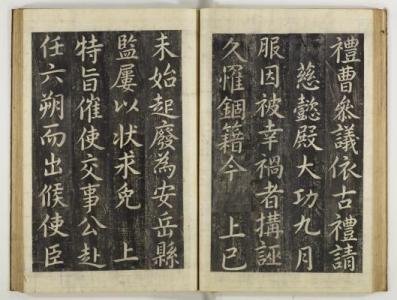 禮曹參議依古禮請
慈懿殿大功九月
服因被幸禍者搆誣
久罹錮籍今 上已
未始起廢為安岳縣
監屢以狀求免 上
特旨催使交事公赴
任六朔而出候使臣